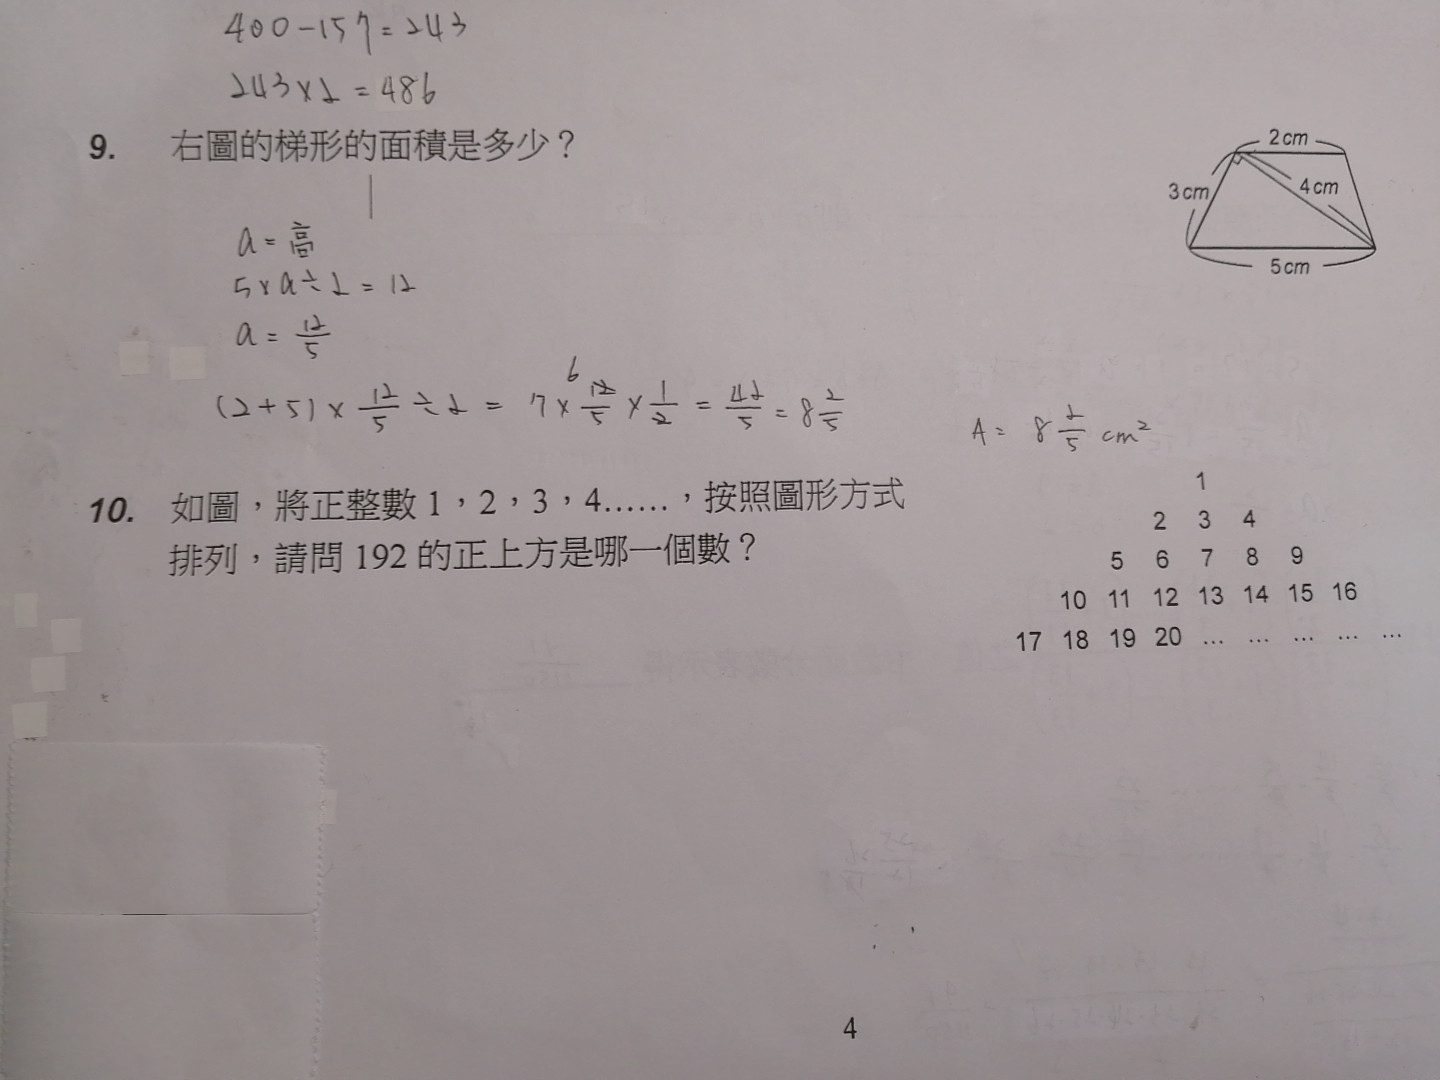 400-157=243
243×2=486
9. 右圖的梯形的面積是多少？
2cm
3cm
4cm
5cm
a=高
5×a÷2=12
a=12/5
(2+5)×12/5÷2=7×12/5×1/2=42/5=8 2/5
6
A= 8 2/5 cm²
10. 如圖，將正整數 1，2，3，4……，按照圖形方式
排列，請問 192 的正上方是哪一個數？
1
2 3 4
5 6 7 8 9
10 11 12 13 14 15 16
17 18 19 20 … … … … …
4